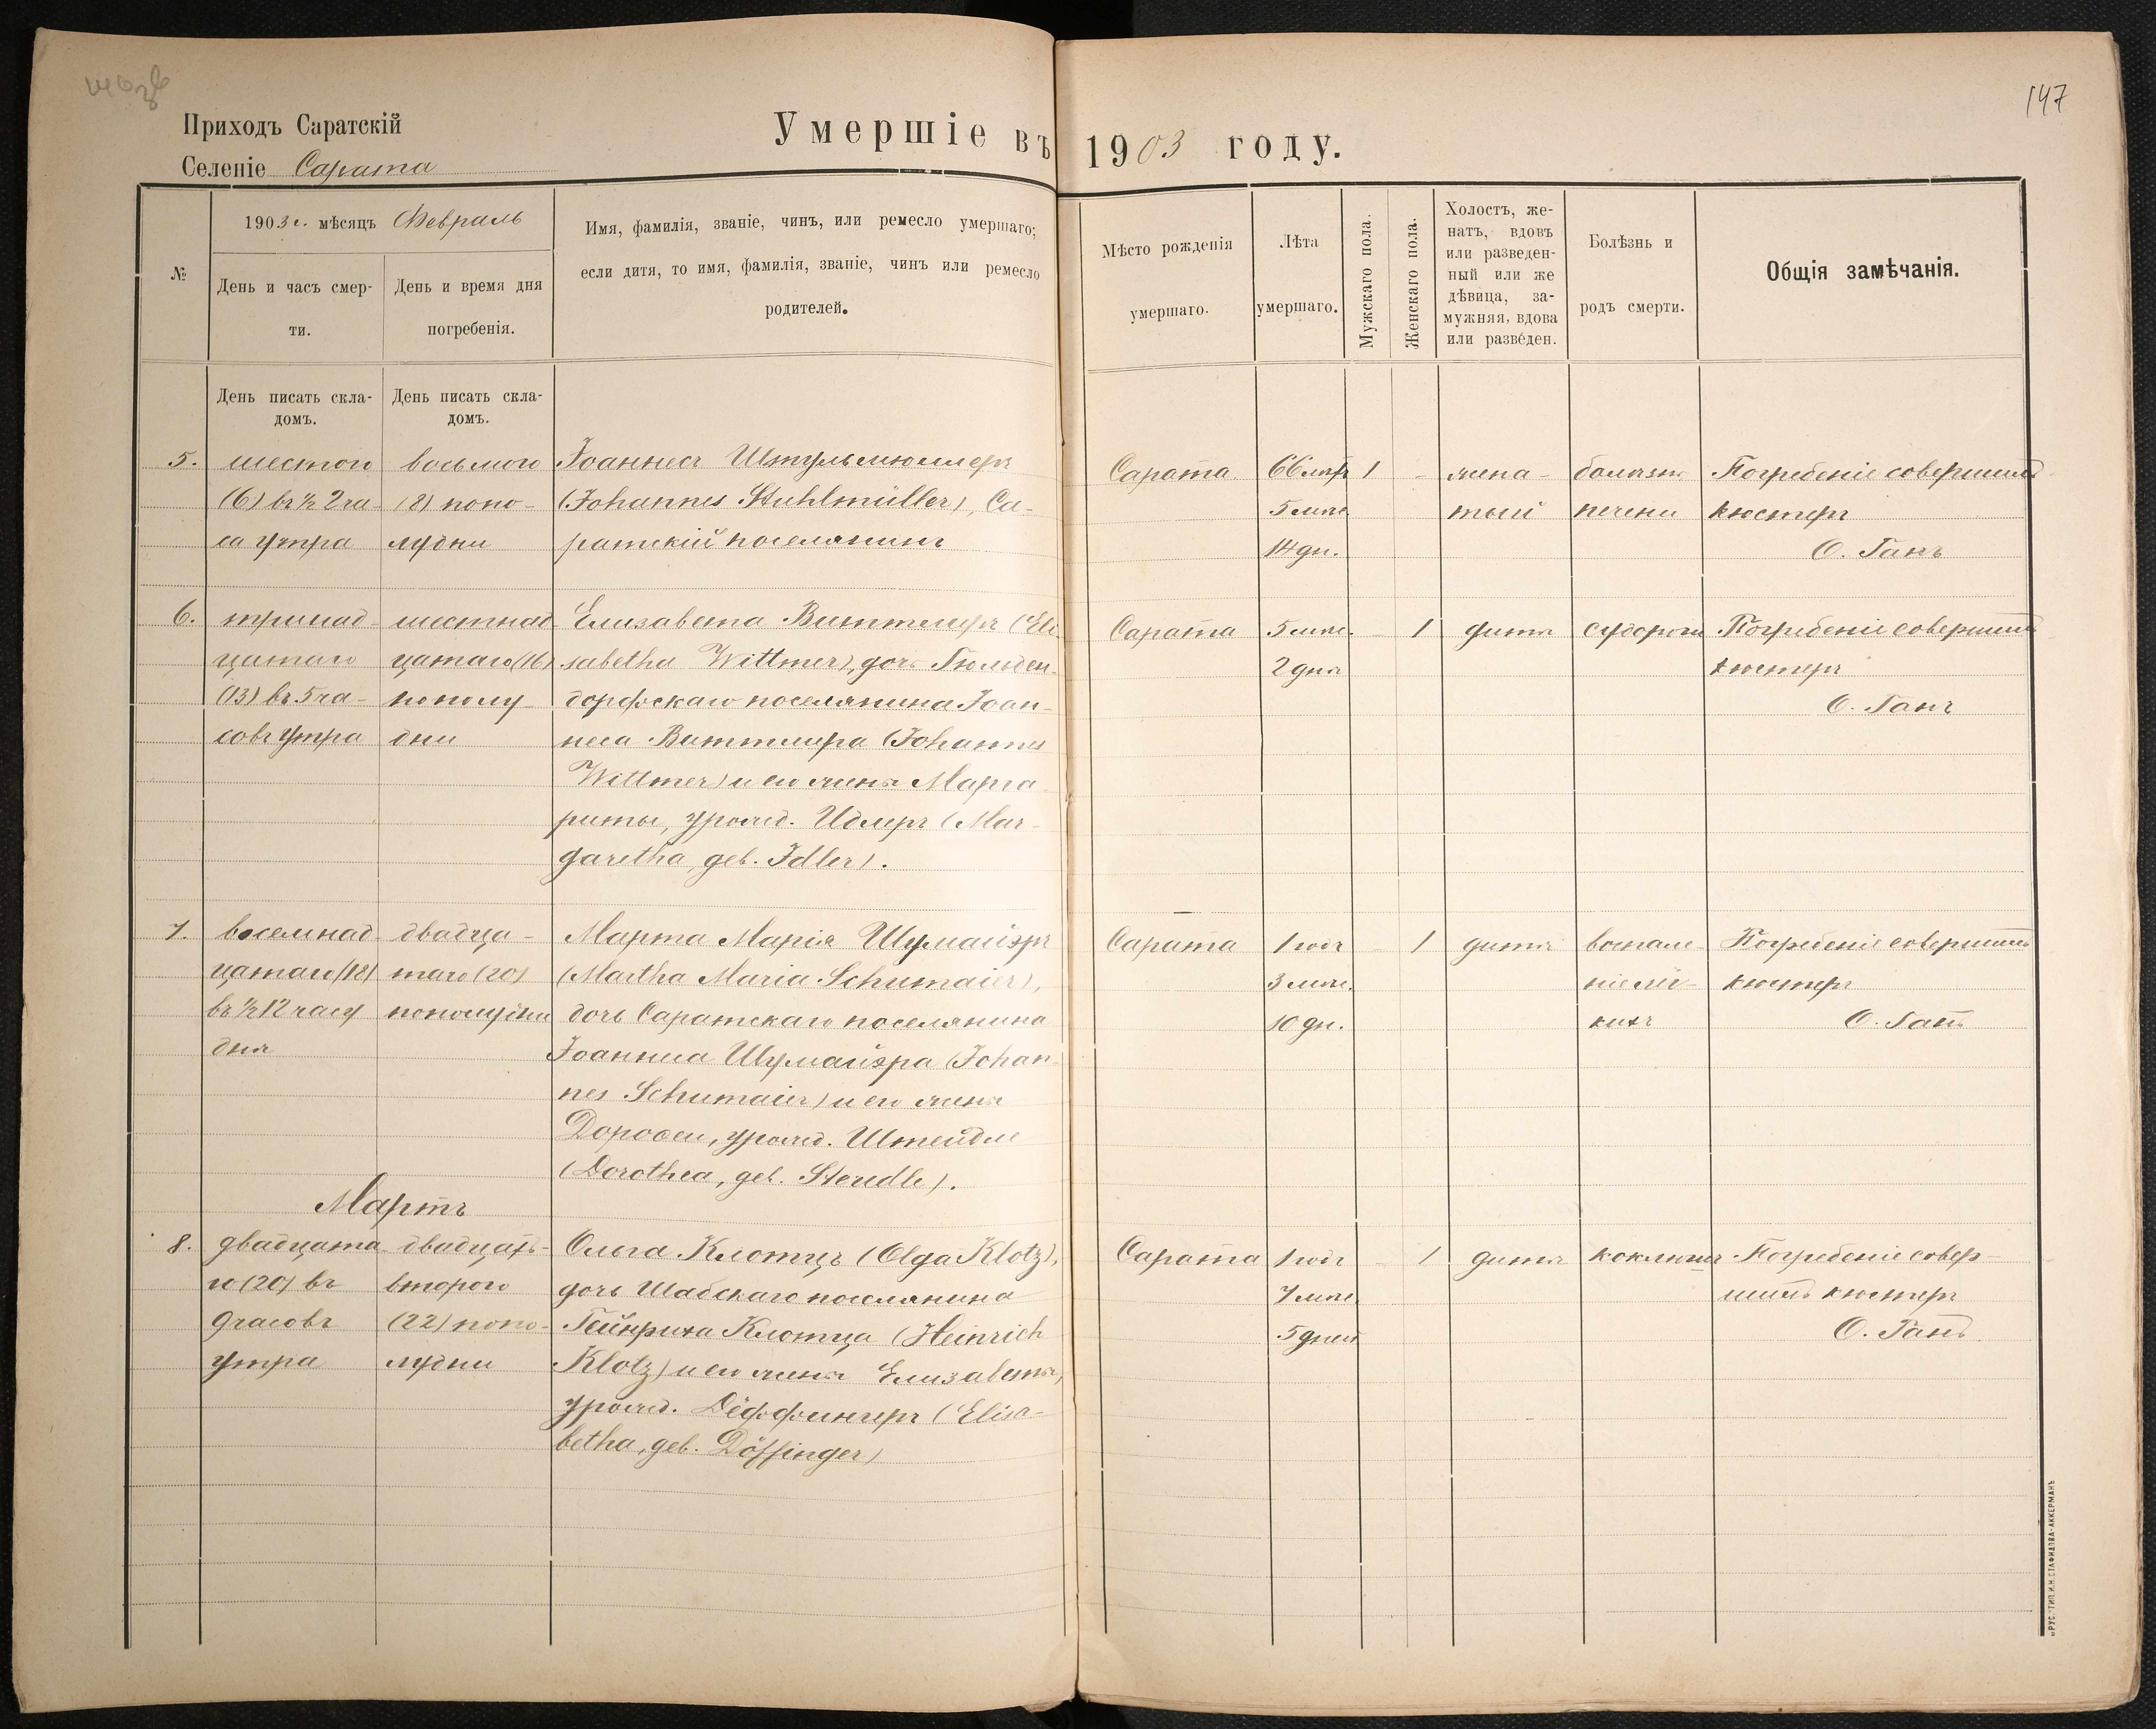 147
Приходъ Саратскій
Селеніе Сарата
Умершіе въ 1903 году.
№
1903 г. мѣсяцъ Февраль
День и часъ смер-
ти.
День и время дня
погребенія.
Имя, фамилія, званіе, чинъ, или ремесло умершаго;
если дитя, то имя, фамилія, званіе, чинъ или ремесло
родителей.
Мѣсто рожденія
умершаго.
Лѣта
умершаго.
Мужскаго пола.
Женскаго пола.
Холостъ, же-
натъ, вдовъ
или разведен-
ный или же
дѣвица, за-
мужняя, вдова
или разведен.
Болѣзнь и
родъ смерти.
Общія замѣчанія.
День писать скла-
домъ.
День писать скла-
домъ.
5.
шестого
(6) въ ½ 2 ча-
са утра
восьмого
(8) попо-
лудни
Іоаннесъ Штульмюллеръ
(Johannes Stuhlmüller), Са-
ратскій поселянинъ
Сарата.
66 лѣтъ
5 мѣс.
14 дн.
1
жена-
тый
болѣзнь
печени
Погребеніе совершилъ
кюстеръ
О. Ганъ
6.
тринад-
цатаго
(13) въ 5 ча-
совъ утра
шестнад-
цатаго (16)
пополу-
дни
Елизавета Виттмеръ (Eli-
sabetha Wittmer), дочь Гюльден-
дорфскаго поселянина Іоан-
неса Виттмера (Johannes
Wittmer) и его жены Марга-
риты, урожд. Идлеръ (Mar-
garetha, geb. Idler).
Сарата
5 мѣс.
2 дня
1
дитя
судороги
Погребеніе совершилъ
кюстеръ
О. Ганъ
7.
восемнад-
цатаго (18)
въ ½ 12 часу
дня
двадца-
таго (20)
пополудни
Марта Марія Шумайэръ
(Martha Maria Schumaier),
дочь Саратскаго поселянина
Іоаннеса Шумайэра (Johan-
nes Schumaier) и его жены
Доротеи, урожд. Штейдле
(Dorothea, geb. Steudle).
Сарата
1 годъ
3 мѣс.
10 дн.
1
дитя
воспале-
ніе лёг-
кихъ
Погребеніе совершилъ
кюстеръ
О. Ганъ
Мартъ
8.
двадцата-
го (20) въ
9 часовъ
утра
двадцать-
второго
(22) попо-
лудни
Ольга Клотцъ (Olga Klotz),
дочь Шабскаго поселянина
Гейнриха Клотца (Heinrich
Klotz) и его жены Елизаветы,
урожд. Дёффингеръ (Elisa-
betha, geb. Döffinger)
Сарата
1 годъ
7 мѣс.
5 дней
1
дитя
коклюшъ
Погребеніе совер-
шилъ кюстеръ
О. Ганъ.
„РУС." ТИП. И. Н. СТАФИДОВА-АККЕРМАНЪ